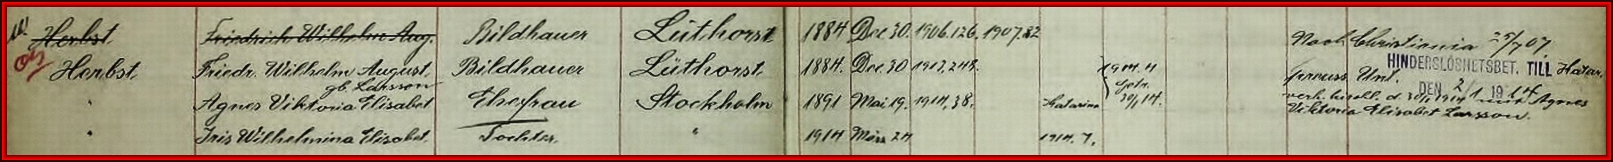 Herbst Friedrich Wilhelm Aug. Bildhauer Lüthorst 1884 Dec. 30. 1906.126. 1907.82 Nach Christiania 25/7 07.
Herbst. Friedr. Wilhelm August. Bildhauer Lüthorst. 1884. Dec. 30 1913.248. 1914.4 HINDERSLÖSHETSBET. TILL Katar.
gb. Larsson Getr. Preuss. Unt. DEN 2/1 1914
Agnes Viktoria Elisabet Ehefrau Stockholm 1891 Mai 19. 1914.38. Katarina 30/1 14. verh. kirchl. d. 30/1 1914 mit Agnes
Viktoria Elisabet Larsson.
" Iris Wilhelmina Elisabet. Tochter. " 1914 März 24 1914.7.